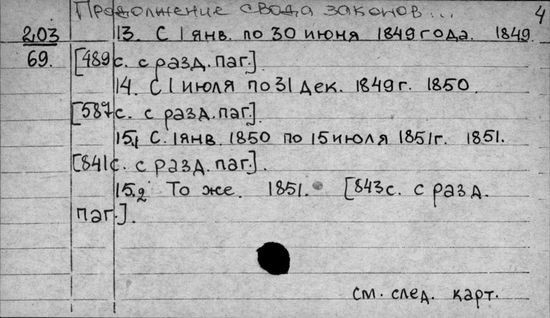 Продолжение свода законов... 4
2,03 13. С 1 янв. по 30 июня 1849 года. 1849.
69. [489 с. с разд. паг.]
14. С 1 июля по 31 дек. 1849 г. 1850.
[587 с. с разд. паг.].
15,1 С. 1 янв. 1850 по 15 июля 1851 г. 1851.
[841 с. с разд. паг.].
15,2 То же. 1851. [843 с. с разд.
паг.].
см. след. карт.